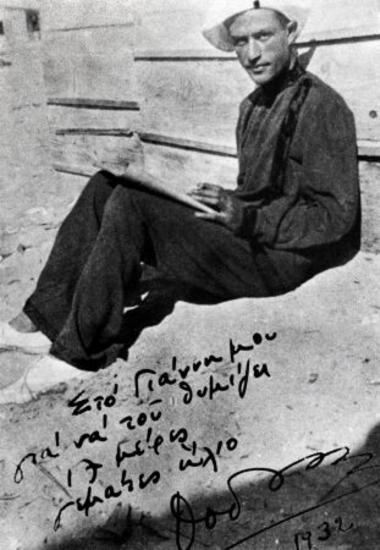 Στό Γιάννη μου
γιά νά τοῦ θυμίζει
μέρες
γεμάτες ἥλιο
1932